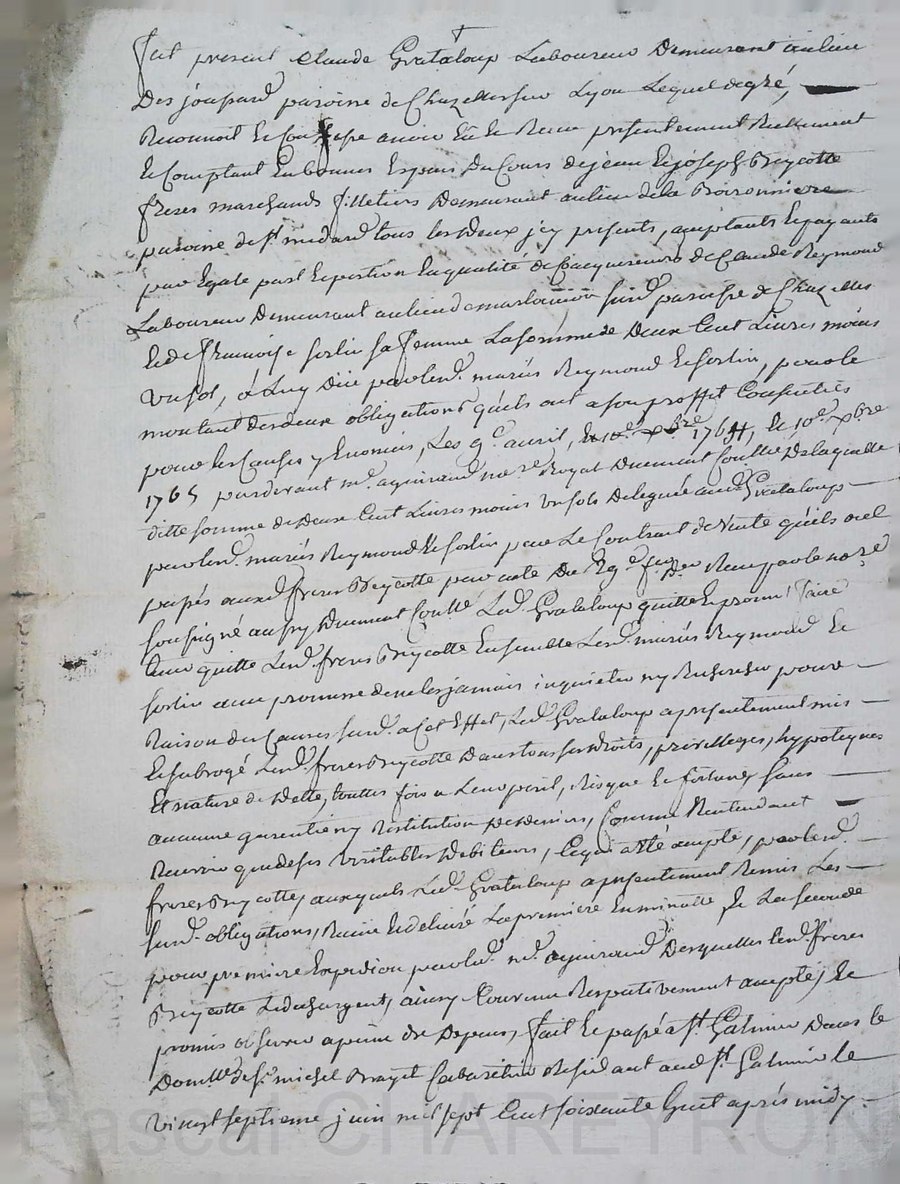 fut present Claude Grataloup Laboureur Demeurant au lieu
Des joupard paroisse de Chazelles sur Lyon Lequel de gré,
Reconnoit Et Confesse avoir Eu Et Receu presentement Reellement
Et Comptant En bonnes Especes Du Cours de jean Et joseph Breycotte
freres marchands Demeurant au lieu de la Boironniere
paroisse de st medard tous les deux jcy presents, acceptants Et payants
par Egale part Et portion En qualité d'acquereurs de Claude Reymond
Laboureur Demeurant au lieu de susd. paroisse de Chazelles
Et de françoise fortin sa femme La somme de Deux Cent Livres moins
un sol, à Luy Düe par lesd. mariés Reymond Et fortin, pour le
montant des deux obligations qu'ils ont a son proffit Consenties
pour les Causes y Enoncés, Les 9e avril, 1764, le 10e xbre
1765 pardevant me aguiraud nore Royal Duement Conttlé De laquelle
ditte somme de Deux Cent Livres moins un sols Deleguée aud. Grataloup
par lesd. mariés Reymond Et fortin par Le Contract de Vente qu'ils ont
passés auxd. freres Breycotte par acte Du Receu par le nore
soussigné aussy Duement Conttlé Led. Grataloup quitte Et promet faire
tenir quitte Lesd. freres Breycotte Ensemble Lesd. mariés Reymond Et
fortin avec promesse de ne les jamais inquieter ny Rechercher pour
Raison des Causes susd. a Cet Effet, Led. Grataloup a presentement mis
Et subrogé Lesd. freres Breycotte Dans tous ses droits, privilleges, hypoteques
Et nature de Dette, touttes fois a Leur peril, Risque Et fortune, sans
aucune garentie ny Restitution De deniers, Comme N'entendant
Recevoir que de ses veritables Debiteurs, Ce qui a Eté accepté, par lesd.
freres Breycotte, auxquels Led. Grataloup a presentement Remis Les
susd. obligations, La premiere En minutte Et La seconde
pour premiere Expedion par led. me aguiraud Desquelles lesd. freres
Breycotte ainsy Convenu Respectivement accepté, Et
promis observer a peine de Depens, fait Et passé a st Galmier Dans le
Domlle de sr michel Brayet Cabaretier Residant aud. st Galmier le
vingt septieme juin mil sept Cent soixante huit après midy.
Pascal CHAREYRON